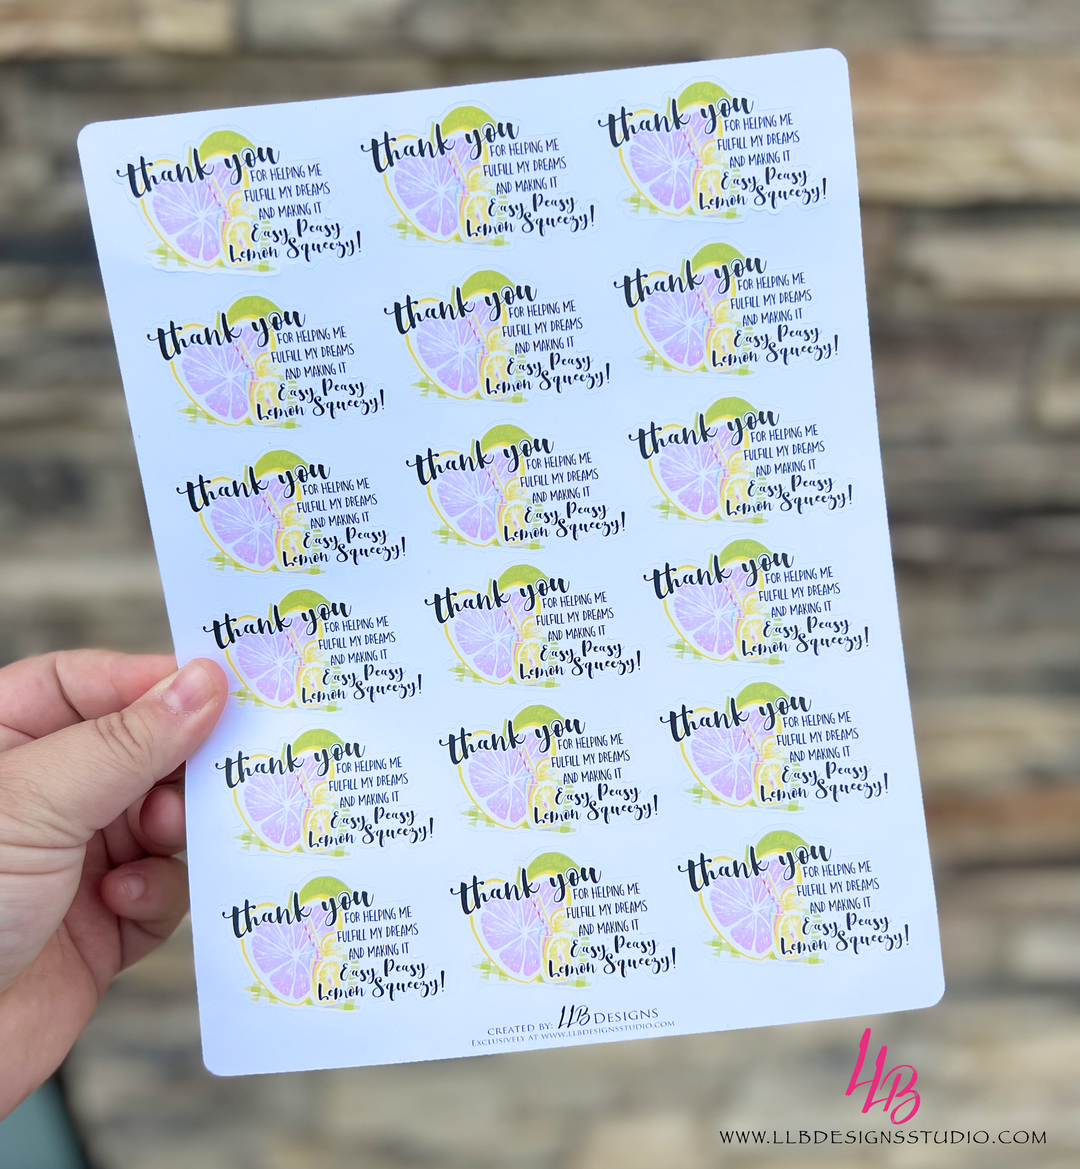 thank you
FOR HELPING ME
FULFILL MY DREAMS
AND MAKING IT
Easy Peasy
Lemon Squeezy!
thank you
FOR HELPING ME
FULFILL MY DREAMS
AND MAKING IT
Easy Peasy
Lemon Squeezy!
thank you
FOR HELPING ME
FULFILL MY DREAMS
AND MAKING IT
Easy Peasy
Lemon Squeezy!
thank you
FOR HELPING ME
FULFILL MY DREAMS
AND MAKING IT
Easy Peasy
Lemon Squeezy!
thank you
FOR HELPING ME
FULFILL MY DREAMS
AND MAKING IT
Easy Peasy
Lemon Squeezy!
thank you
FOR HELPING ME
FULFILL MY DREAMS
AND MAKING IT
Easy Peasy
Lemon Squeezy!
thank you
FOR HELPING ME
FULFILL MY DREAMS
AND MAKING IT
Easy Peasy
Lemon Squeezy!
thank you
FOR HELPING ME
FULFILL MY DREAMS
AND MAKING IT
Easy Peasy
Lemon Squeezy!
thank you
FOR HELPING ME
FULFILL MY DREAMS
AND MAKING IT
Easy Peasy
Lemon Squeezy!
thank you
FOR HELPING ME
FULFILL MY DREAMS
AND MAKING IT
Easy Peasy
Lemon Squeezy!
thank you
FOR HELPING ME
FULFILL MY DREAMS
AND MAKING IT
Easy Peasy
Lemon Squeezy!
thank you
FOR HELPING ME
FULFILL MY DREAMS
AND MAKING IT
Easy Peasy
Lemon Squeezy!
thank you
FOR HELPING ME
FULFILL MY DREAMS
AND MAKING IT
Easy Peasy
Lemon Squeezy!
thank you
FOR HELPING ME
FULFILL MY DREAMS
AND MAKING IT
Easy Peasy
Lemon Squeezy!
thank you
FOR HELPING ME
FULFILL MY DREAMS
AND MAKING IT
Easy Peasy
Lemon Squeezy!
thank you
FOR HELPING ME
FULFILL MY DREAMS
AND MAKING IT
Easy Peasy
Lemon Squeezy!
thank you
FOR HELPING ME
FULFILL MY DREAMS
AND MAKING IT
Easy Peasy
Lemon Squeezy!
thank you
FOR HELPING ME
FULFILL MY DREAMS
AND MAKING IT
Easy Peasy
Lemon Squeezy!
CREATED BY: LLB DESIGNS
EXCLUSIVELY AT WWW.LLBDESIGNSSTUDIO.COM
LLB
WWW.LLBDESIGNSSTUDIO.COM